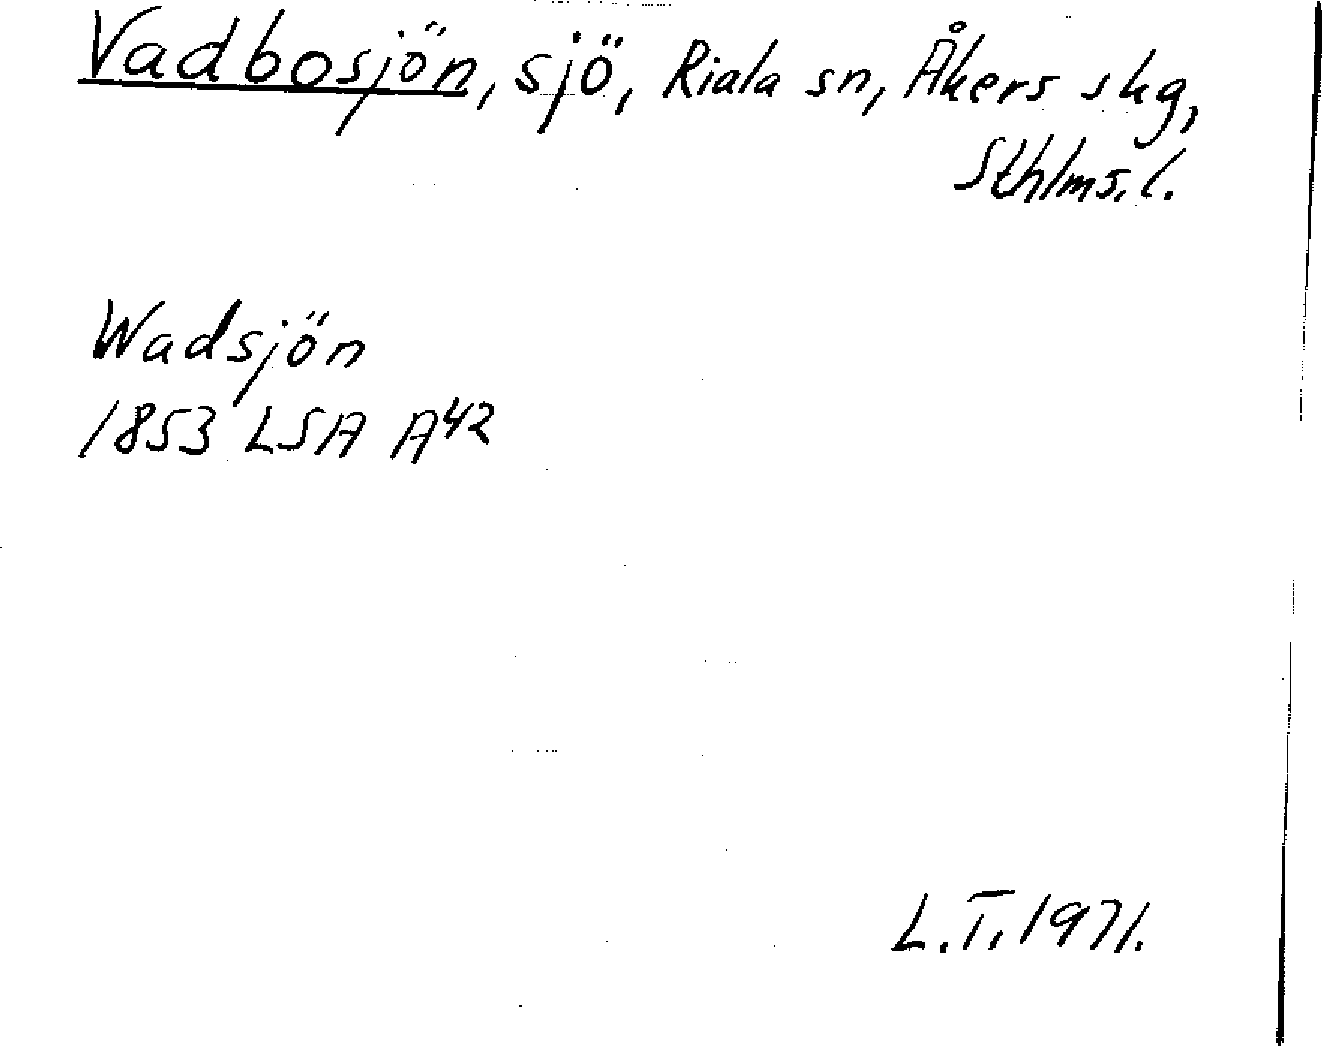 Vadbosjön, sjö, Riala sn, Åkers skg,
Sthlms. l.
Wadsjön
1853 LSA A42
L.T. 1971.